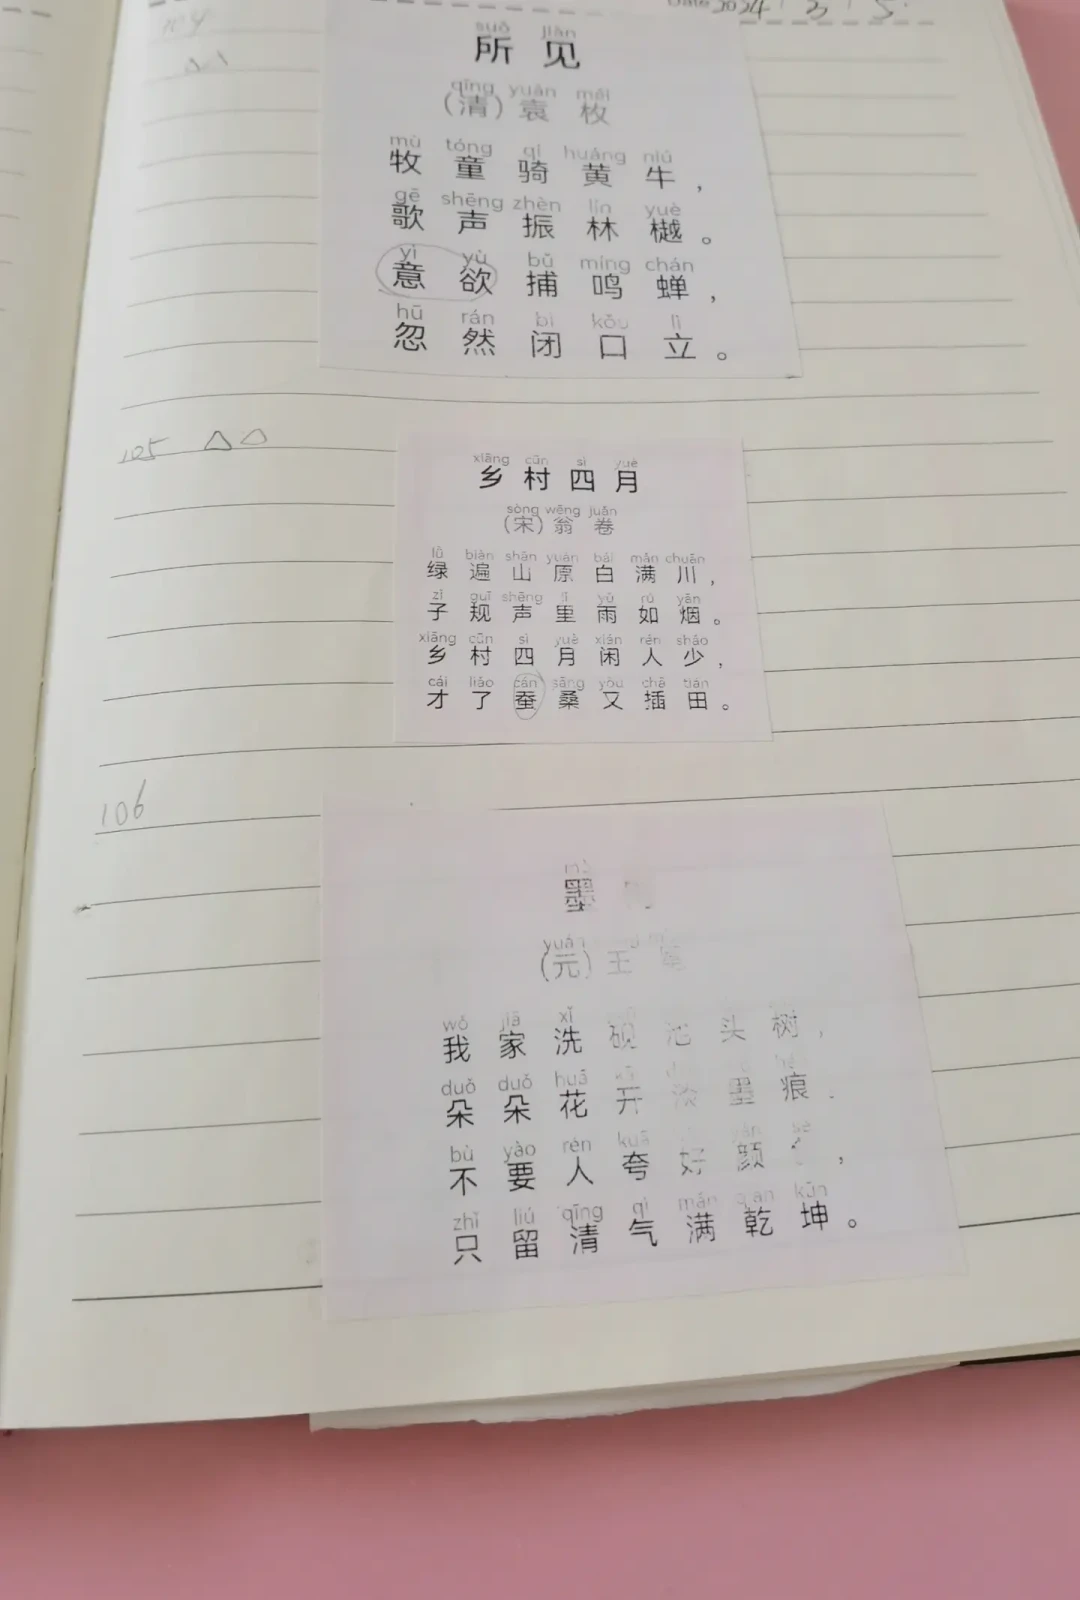 Date 2024 3 5
104
suǒ jiàn
所 见
qīng yuán méi
（清）袁 枚
mù tóng qí huáng niú
牧 童 骑 黄 牛，
gē shēng zhèn lín yuè
歌 声 振 林 樾。
yì yù bǔ míng chán
意 欲 捕 鸣 蝉，
hū rán bì kǒu lì
忽 然 闭 口 立。
105 △△
xiāng cūn sì yuè
乡 村 四 月
sòng wēng juǎn
（宋）翁 卷
lǜ biàn shān yuán bái mǎn chuān
绿 遍 山 原 白 满 川，
zǐ guī shēng lǐ yǔ rú yān
子 规 声 里 雨 如 烟。
xiāng cūn sì yuè xián rén shǎo
乡 村 四 月 闲 人 少，
cái liǎo cán sāng yòu chā tián
才 了 蚕 桑 又 插 田。
106
墨
yuán
（元）王
wǒ jiā xǐ
我 家 洗 砚 池 头 树，
duǒ duǒ huā
朵 朵 花 开 淡 墨 痕
bù yào rén kuā yán sè
不 要 人 夸 好 颜 ，
zhǐ liú qīng qì mǎn qián kūn
只 留 清 气 满 乾 坤。